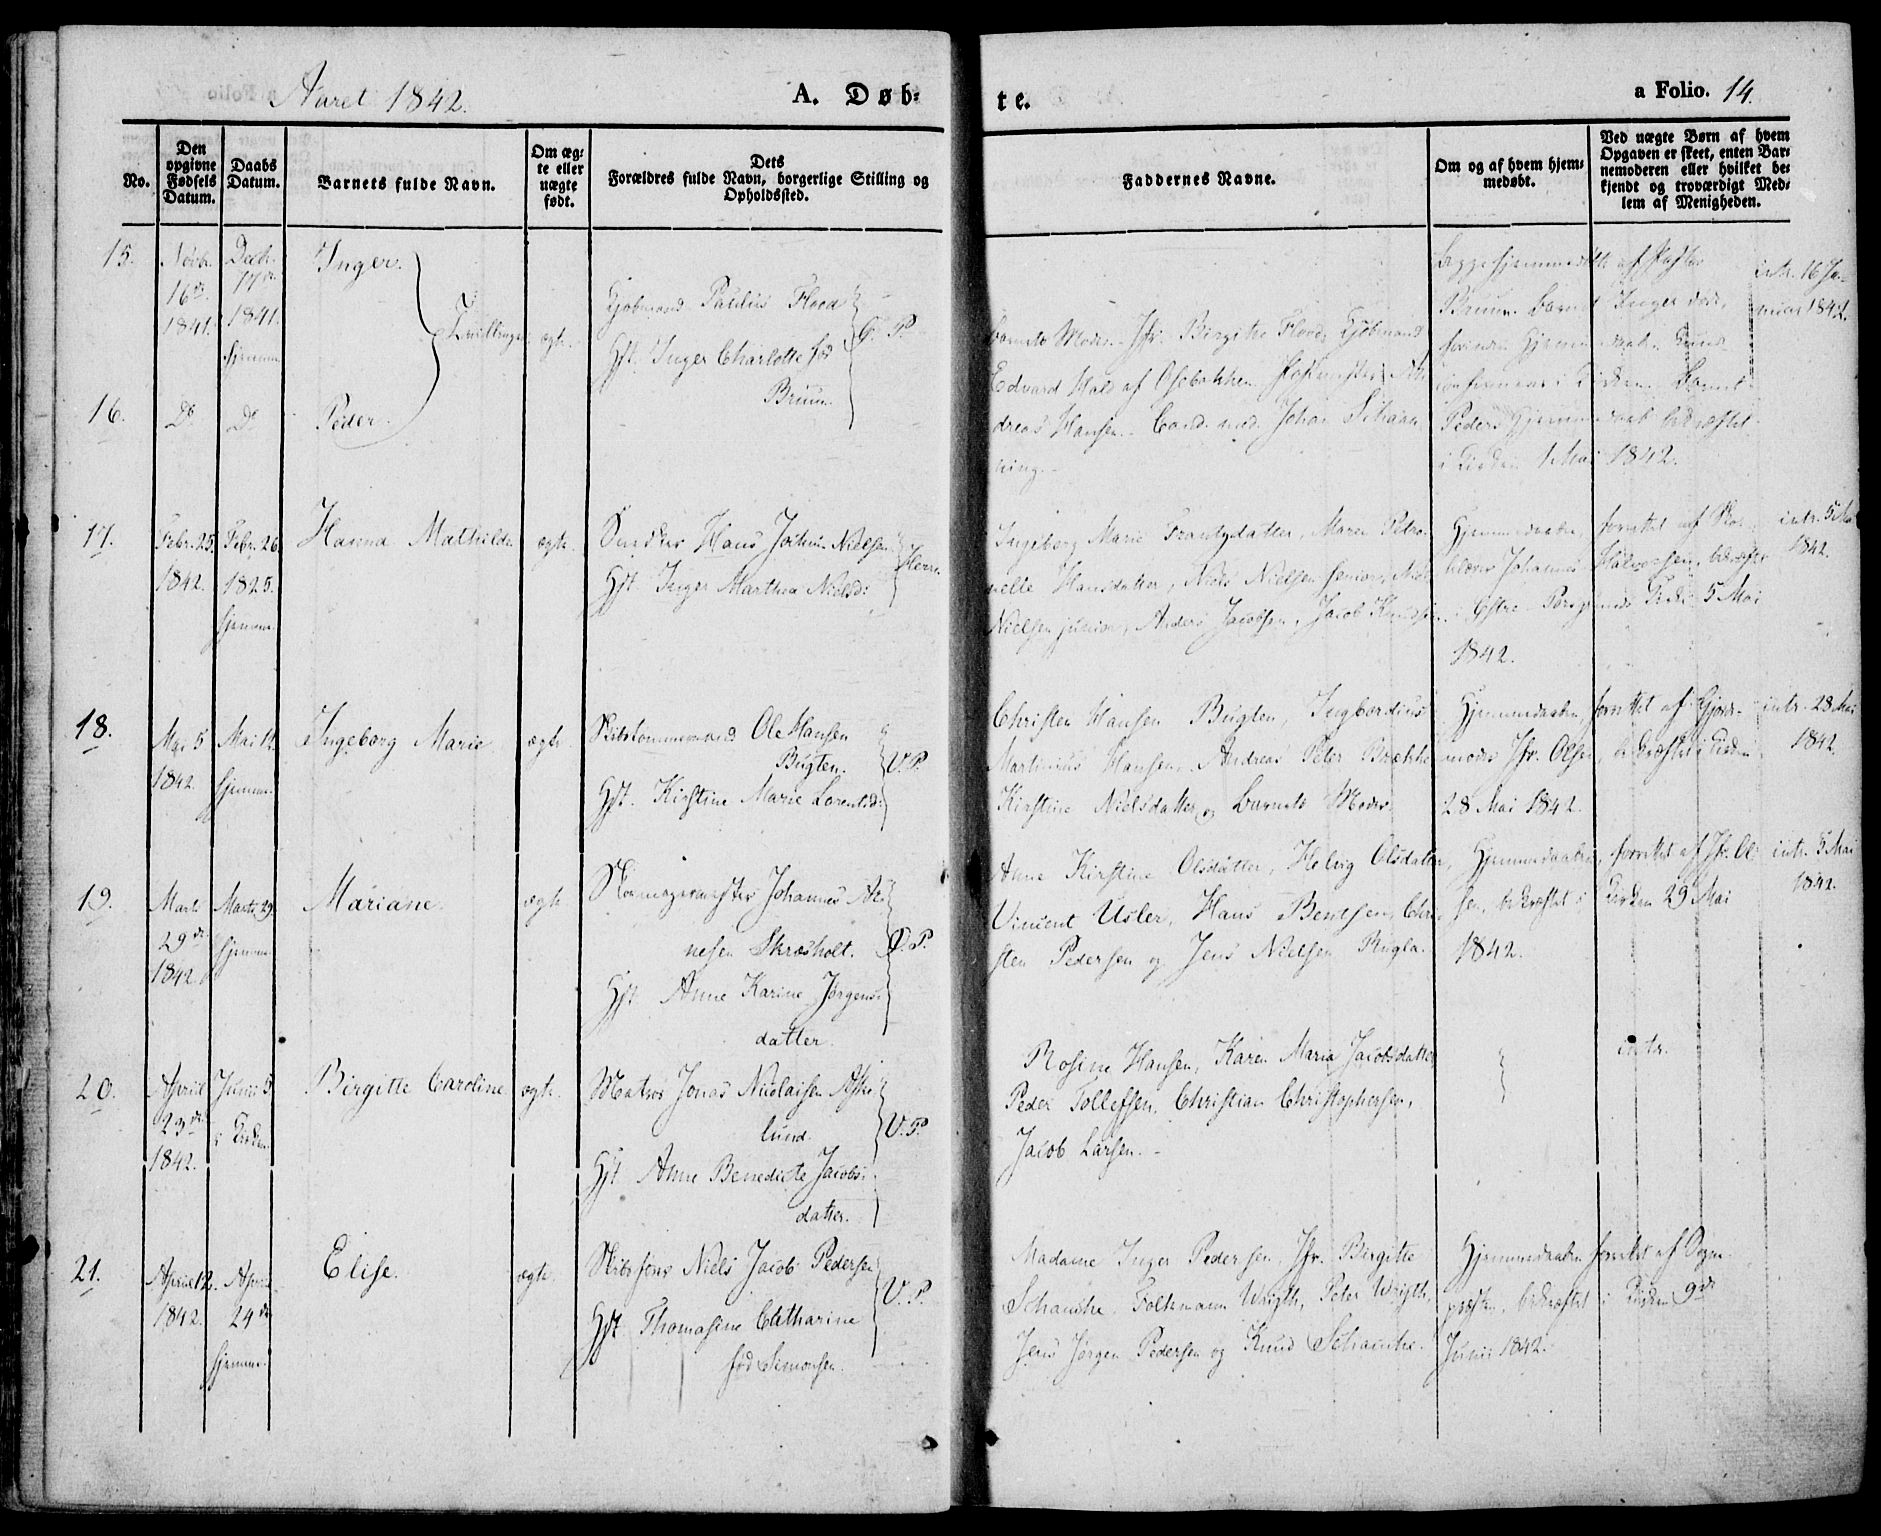 Aaret 1842.
A. Døb-
te.
a Folio. 14.
No.
Den opgivne Fødsels Datum.
Daabs Datum.
Barnets fulde Navn.
Om æg-
te eller
uægte
født.
Dets
Forældres fulde Navn, borgerlige Stilling og
Opholdssted.
Faddernes Navne.
Om og af hvem hjem-
medøbt.
Ved uægte Børn af hvem
Opgaven er skeet, enten Bar-
nemoderen eller hvilket be-
kjendt og troværdigt Med-
lem af Menigheden.
15.
Novbr.
16de
1841.
Decb.
17de
1841.
hjemme
Inger.
Tvillinger
ægte
Kjøbmand Paulus Flood
Hst. Inger Charlotte fød
Bruun
Ø. P.
Barnets Moder. Jfr. Birgithe Flood, Kjøbmand
Edvard Hals af Osebakken
dreas Hansen. Cand. med. Johan Schaan
ning.
Begge hjemmedøbte af Pastor
Bruun. Barnet Inger døde,
Barnet
Peders Hjemmedaab bekræftet
i Kirken 1 Mai 1842.
intr. 16 Ja-
nuar 1842.
16.
Do
Do
Peder.
17.
Febr. 25.
1842.
Febr. 26
1825.
hjemme
Hanna Mathilde
ægte
Smeder Hans Jochum Nielsen
Hst. Inger Marthea Nielsd:
Herre
Ingeborg Marie Frantzdatter, Maren Petro-
nelle Hansdatter, Niels Nielsen senior, Niels
Nielsen junior, Anders Jacobsen, Jacob Knudsen
Hjemmedaaben, forrettet af
Johannes Halvorsen, bekræftet
i Østre Porsgrunds Kirke 5 Mai
1842.
intr. 5 Mai
1842.
18.
Mai 5
1842.
Mai 12
hjemme
Ingeborg Marie
ægte
Skibstømmermand Ole Hansen
Bugten.
Hst. Kirstine Marie Lorentsd:
V. P.
Christen Hansen Bugten, Ingbordius
Martinius Hansen, Andreas Peter Brække
Kirstine Nielsdatter og Barnets Moder.
Hjemmedaaben, forrettet af Gjord-
moder Jfr. Olsen, bekræftet i Kirken
28 Mai 1842.
intr. 28 Mai
1842.
19.
Marts
29de
1842.
Marts 29
hjemme
Mariane.
ægte
Skomagermester Johannes Ar-
nesen Skræsholt.
Hst. Anne Karine Jørgens-
datter.
V. P.
Anne Kirstine Olsdatter, Helvig Olsdatter,
Vincent Usler, Hans Bentsen, Chri-
sten Pedersen og Jens Nielsen Rugla.
Hjemmedaaben, forrettet af Jfr. Ol-
sen, bekræftet i Kirken 29 Mai
1842.
intr. 5 Mai
1842.
20.
April
23de
1842.
Junii 5
i Kirken
Birgitte Caroline
ægte.
Matros Jonas Nicolaisen Aske-
lund.
Hst Anne Benedicte Jacobs-
datter.
V. P.
Rosine Hansen, Karen Maria Jacobsdatter
Peder Tollefsen, Christian Christophersen,
Jacob Larsen.
intr.
21.
April 12.
1842.
April
24de
hjemme
Elise.
ægte.
Skibsfører Niels Jacob Pedersen
Hst. Thomasine Catharine
fød Simonsen.
V. P.
Madame Inger Pedersen, Jfr. Birgitte
Schanche, Folkmann Wrigth, Peter Wrigth,
Jens Jørgen Pedersen og Knud Schanche.
Hjemmedaaben forrettet af Sogne-
præsten, bekræftet i Kirken 9de
Junii 1842.